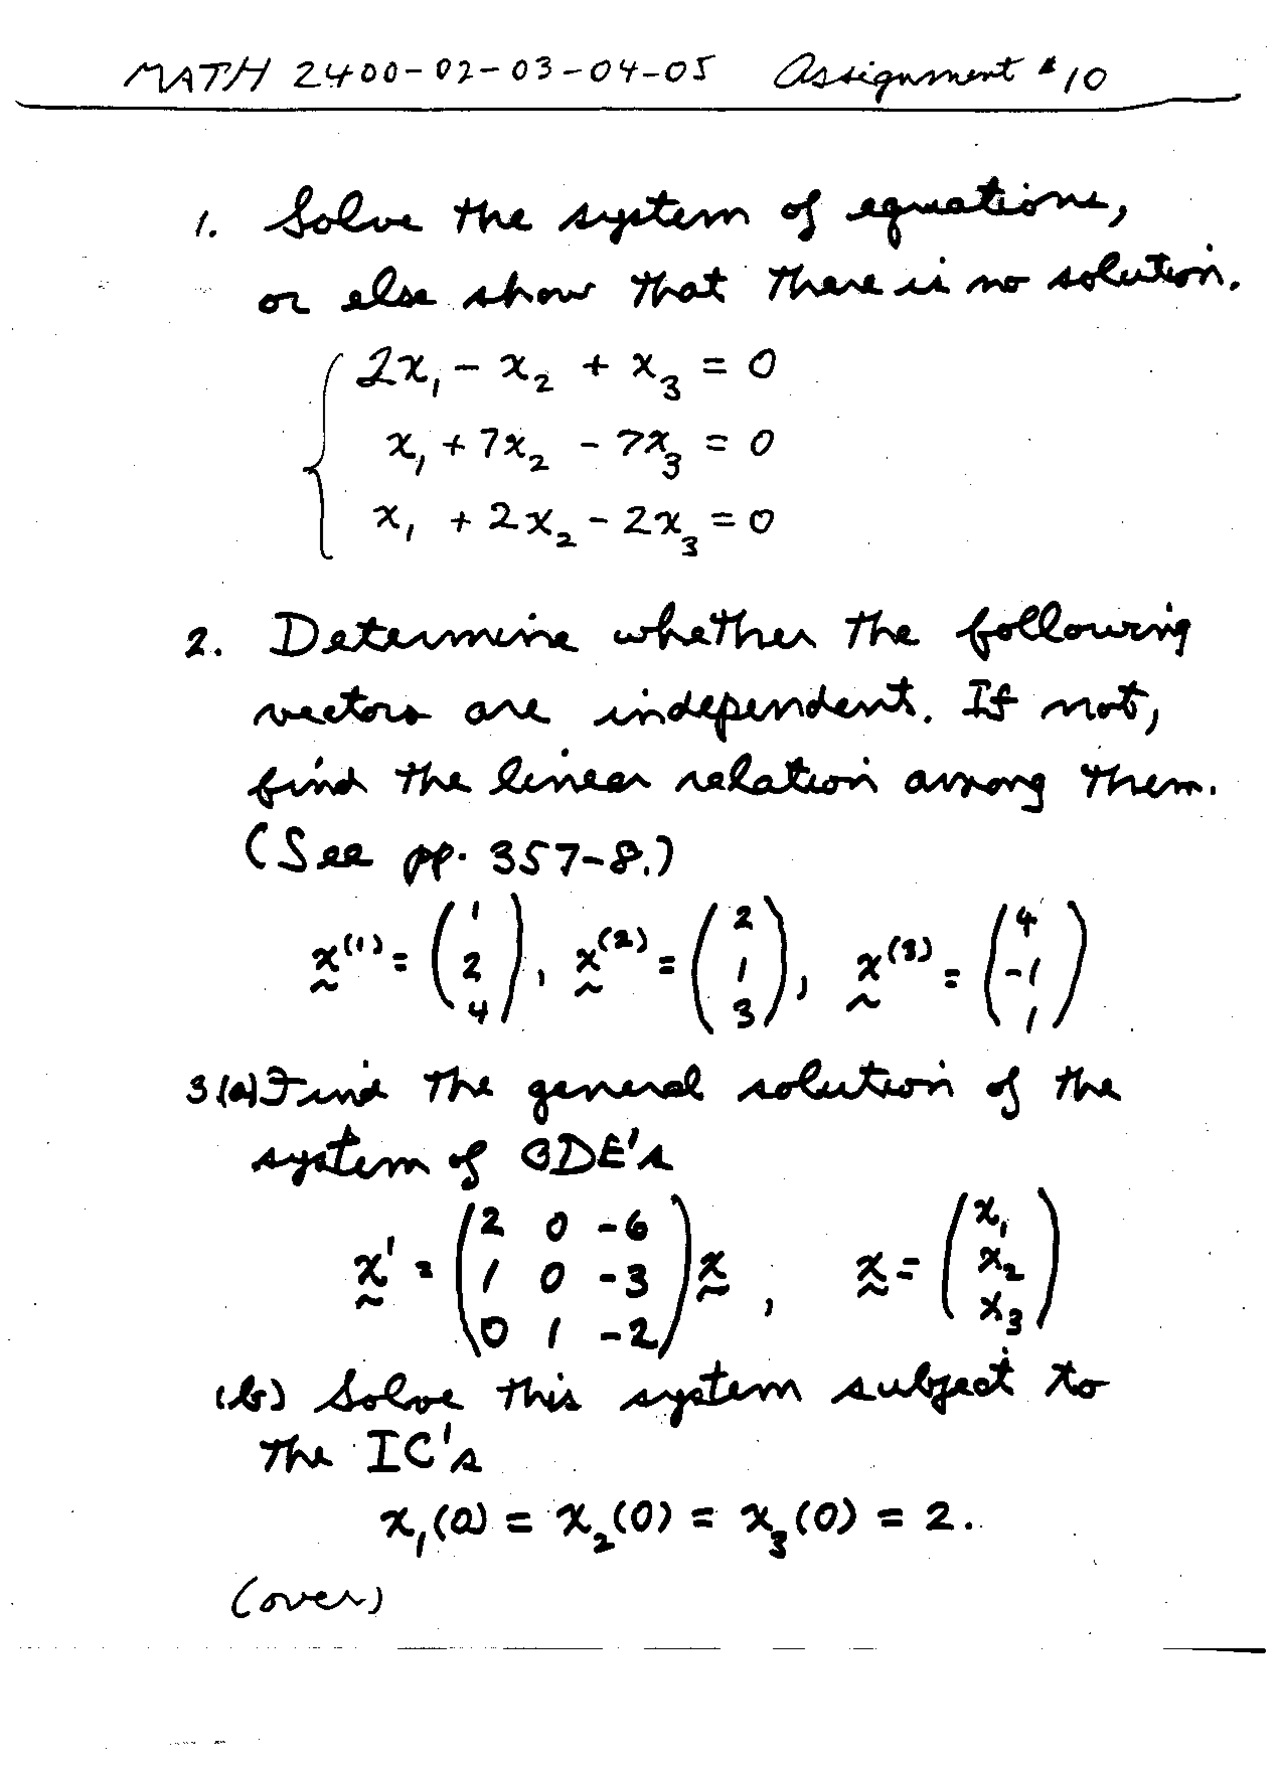 MATH 2400-02-03-04-05 Assignment #10
1. Solve the system of equations,
or else show that there is no solution.
2x₁ - x₂ + x₃ = 0
x₁ + 7x₂ - 7x₃ = 0
x₁ + 2x₂ - 2x₃ = 0
2. Determine whether the following
vectors are independent. If not,
find the linear relation among them.
(See pp. 357-8.)
x⁽¹⁾ = (1 2 4), x⁽²⁾ = (2 1 3), x⁽³⁾ = (4 -1 1)
3(a) Find the general solution of the
system of ODE's
x' = (2 0 -6
1 0 -3
0 1 -2) x , x = (x₁ x₂ x₃)
(b) Solve this system subject to
the IC's
x₁(0) = x₂(0) = x₃(0) = 2.
(over)